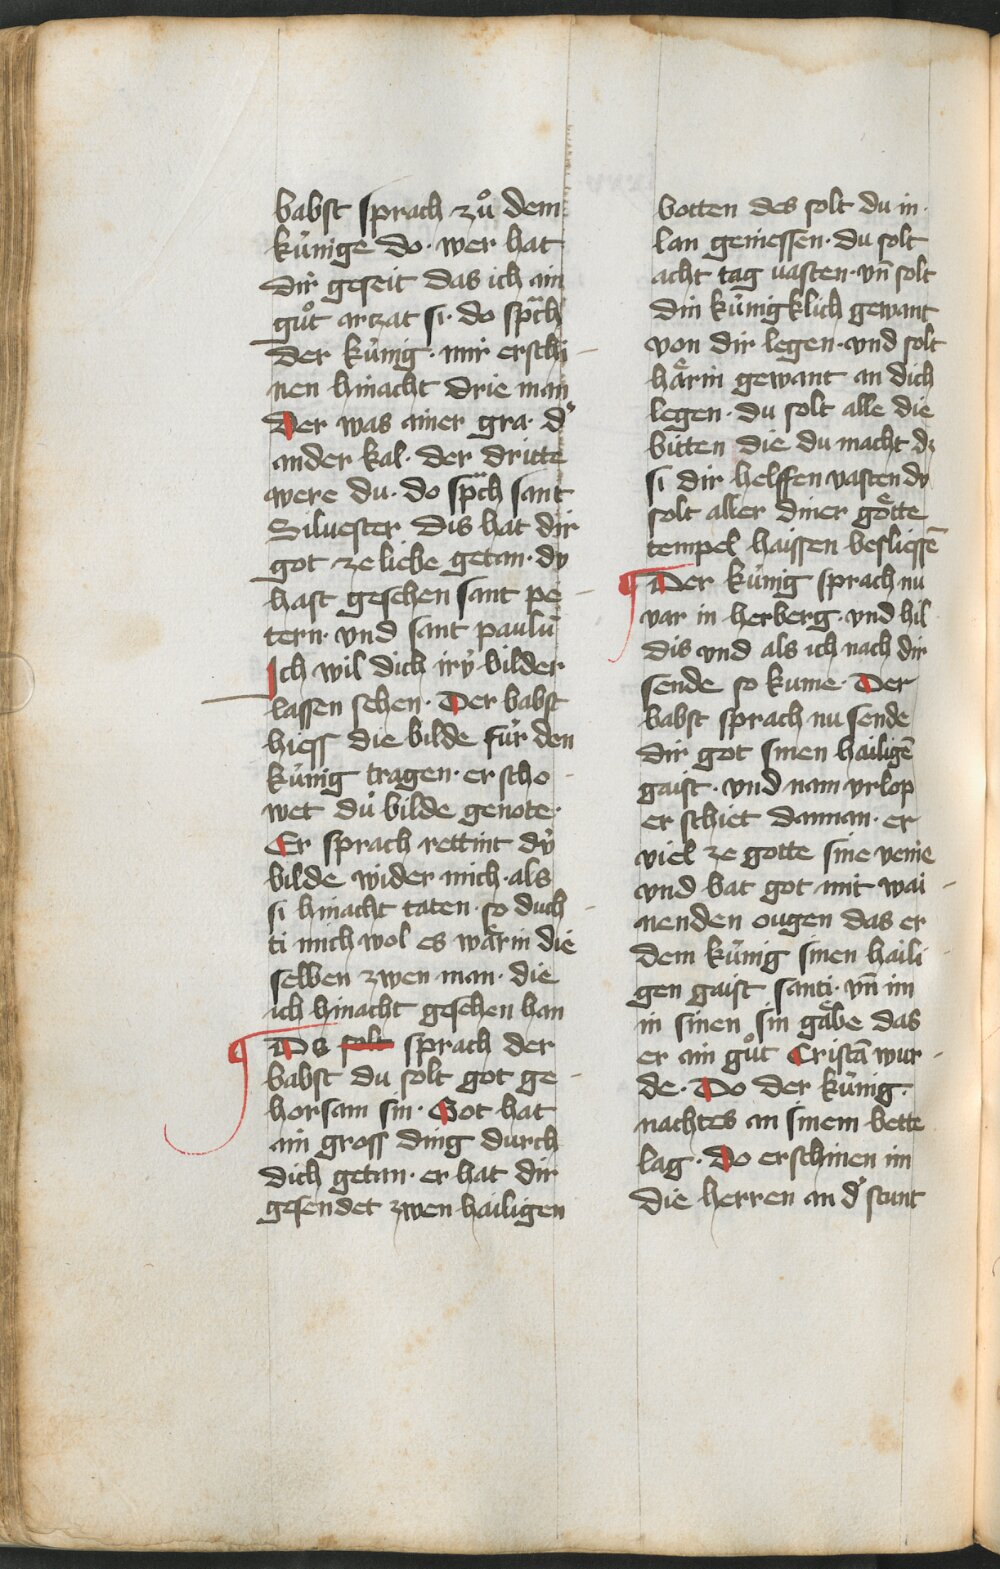 babst sprach zuͦ dem
kúnige do · wer hat
dir geseit das ich ain
guͦt arzat si · do spͣch
der kúnig · mir erschi-
nen hinacht drie man
Der was ainer gra · dˀ
ander kal · der dritte
were du · do spͣch sant
Siluester dis hat dir
got ze liebe getan · dv
hast gesehen sant pe-
tern · vnd sant paulū
Ich wil dich irṿ bilder
lassen sehen · Der babst
hiess die bilde fúr den
kúnig tragen · er scho-
wet dú bilde genote ·
Er sprach rettint dẏ
bilde wider mich · als
si hinacht taten · so duch-
ti mich wol es waͤrin die
selben zwen man · die
ich hinacht gesehen han
¶ Do solt sprach der
babst du solt got ge-
horsam sin · Got hat
ain gross ding durch
dich getan · er hat dir
gesendet zwen hailigen
botten des solt du in ·
lan geniessen · du solt
acht tag uasten · vn̄ solt
din kúnigklich gewant
von dir legen · vnd solt
haͤrin gewant an dich
legen · du solt alle die
bitten die du macht dz
si dir helffen vasten dv
solt aller diner goͤtte
tempel haissen besliessē
¶ Der kúnig sprach nu
var in herberg · vnd hil
dis vnd als ich nach dir
sende so kume · Der
babst sprach nu sende
dir got sinen hailigē
gaist · vnd nam vrlop
er schiet dannan · er
viel ze gotte sine venie
vnd bat got mit wai-
nenden ougen das er
dem kúnig sinen haili-
gen gaist santi · vn̄ im
in sinen sin gaͤbe das
er ain guͦt Cristā wur-
de · Do der kúnig ·
nachtes an sinem bette
lag · Do erschinen im
die herren an dˀ stunt